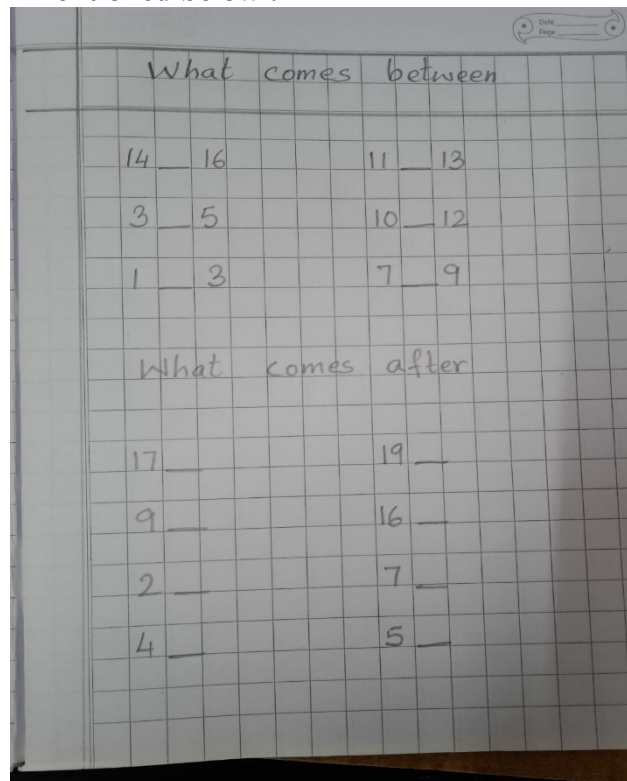 Date
Page
What comes between
14 __ 16 11 __ 13
3 __ 5 10 __ 12
1 __ 3 7 __ 9
What comes after
17 __ 19 __
9 __ 16 __
2 __ 7 __
4 __ 5 __